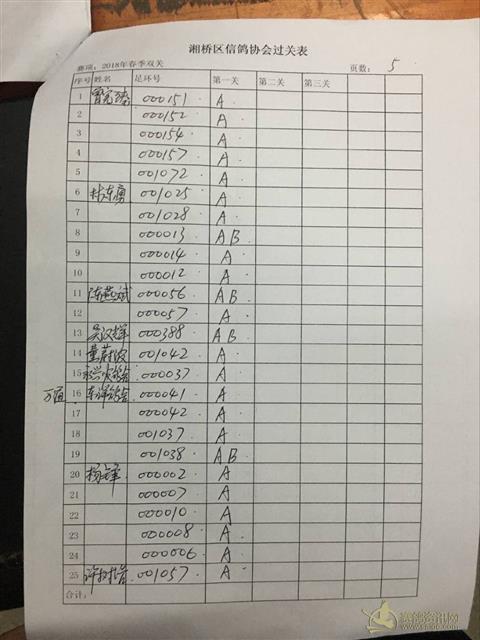 湘桥区信鸽协会过关表
赛项: 2018年春季双关 页数: 5
序号 姓名 足环号 第一关 第二关 第三关
1 000151 A
2 000152 A
3 000154 A
4 000157 A
5 001072 A
6 林东勇 001025 A
7 001028 A
8 000013 AB
9 000014 A
10 000012 A
11 陈燕斌 000056 AB
12 000057 A
13 吴汉辉 000388 AB
14 001042 A
15 000037 A
16 000041 A
17 000042 A
18 001037 A
19 001038 AB
20 000002 A
21 000007 A
22 000010 A
23 000008 A
24 000006 A
25 001057 A
合计:
赛鸽资讯网